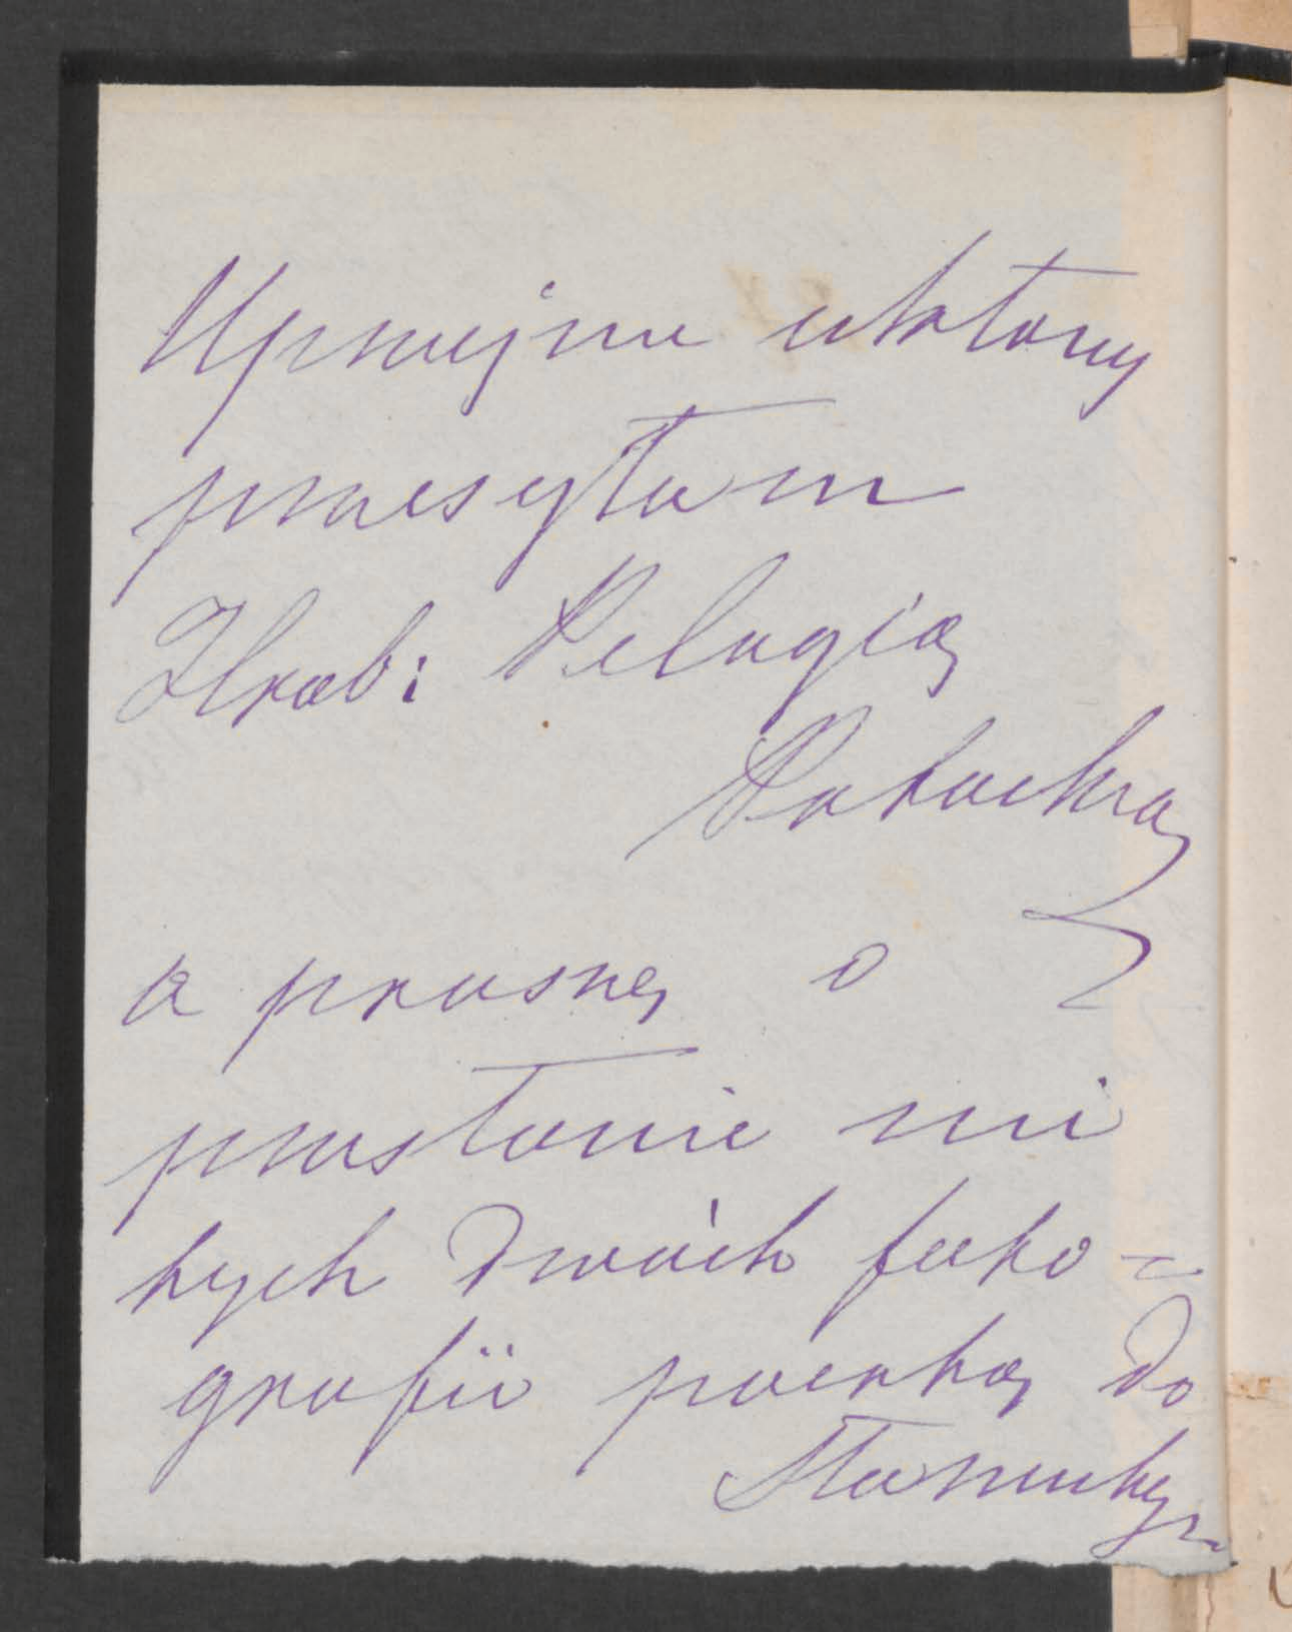 Uprzejme ukłony
przesyłam
Hrab: Pelagią
Potocką
a proszę o
przesłanie mi
tych dwóch foto-
grafii pocztą do